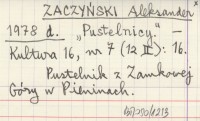 ZACZYŃSKI Aleksander
1978 d. „Pustelnicy." —
Kultura 16, nr 7 (12 II): 16.
Pustelnik z Zamkowej
Góry w Pieninach.